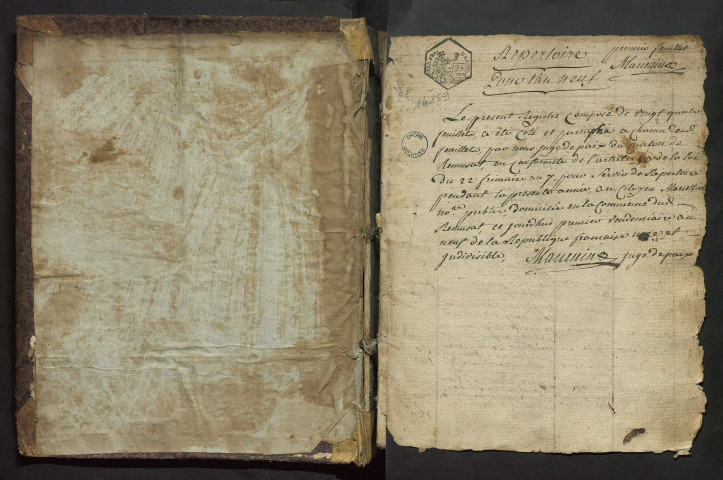 Repertoire
Pour l'an neuf
premier feuillet
Mauenine
Le present Registre Composé de vingt quatre
feuillets a été Coté et paraphé a chacun des d
feuillet par nous juge de paix du Canton de
Remusat en Conformité de l'article de la Loi
du 22 frimaire an 7 pour Servir de Repertoire
pendant la presente année au Citoyen
no.re public domicilié en la Commune dud.
Remusat ce jourdhui premier vendemiaire an
neuf de la Republique francaise une et
Indivisible, Mauenine juge de paix